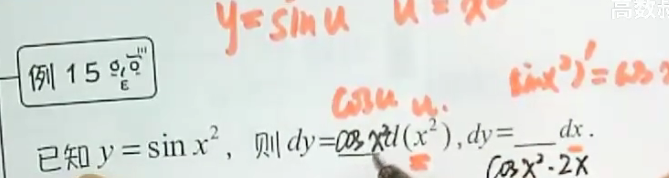 高数
y=sinu u=x
例 15
sin(x²)'=cos
cosu u.
已知 y = sin x², 则 dy=cos x²d(x²), dy=___dx.
cosx²·2x